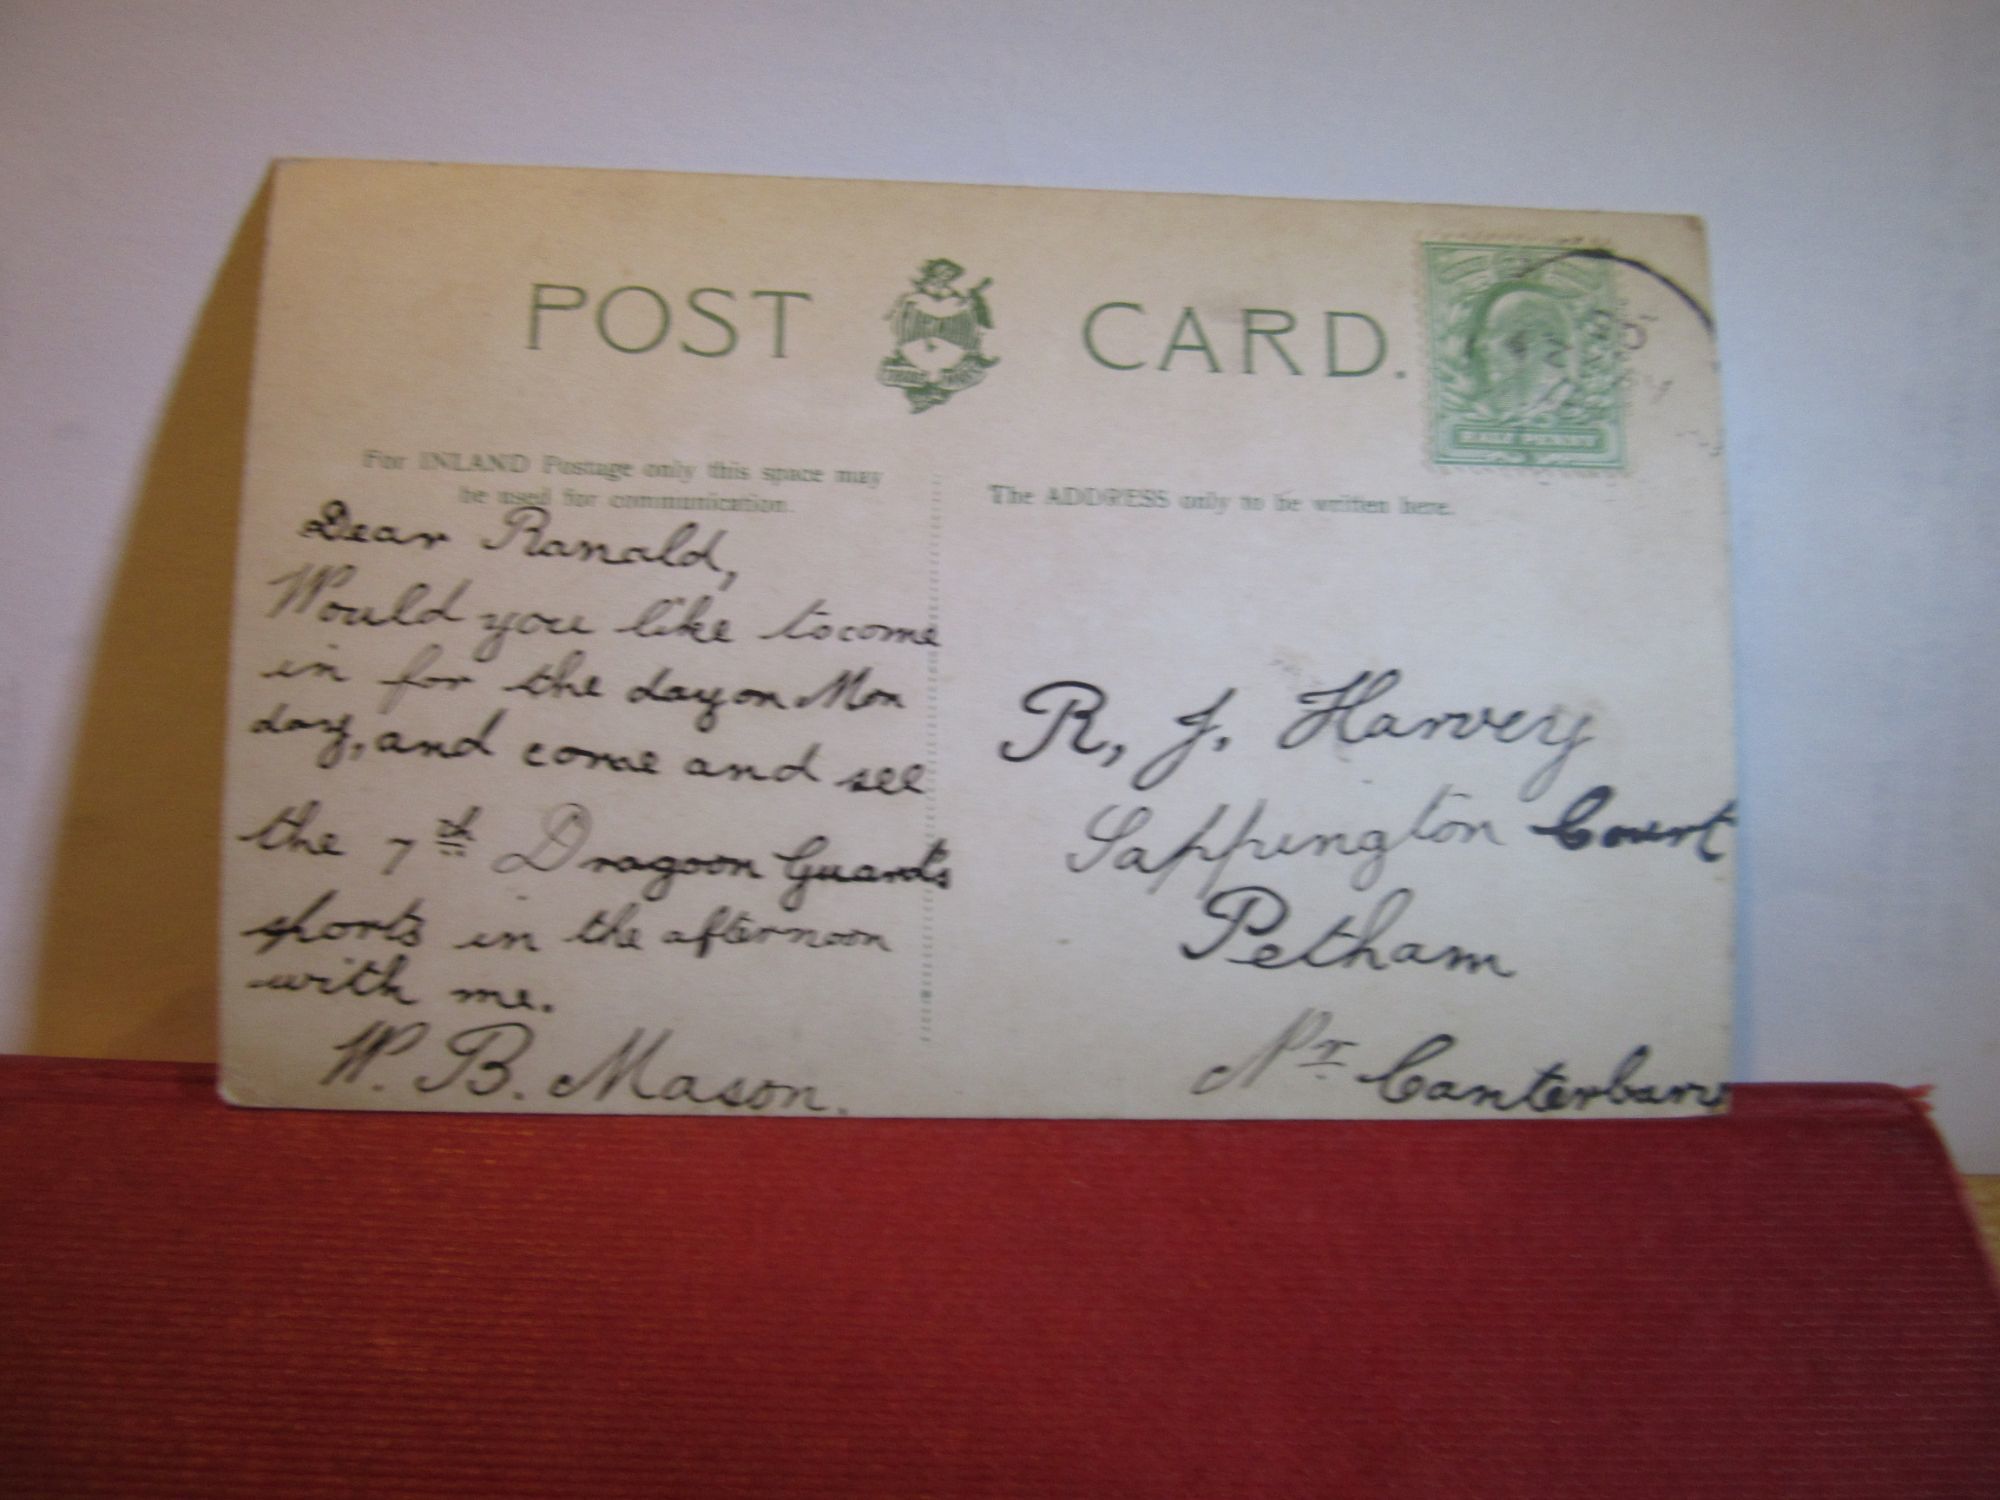 POST CARD.
For INLAND Postage only this space may
be used for communication.
The ADDRESS only to be written here.
HALF PENNY
Dear Ranald,
Would you like to come
in for the day on Mon
day, and come and see
the 7th Dragoon Guards
sports in the afternoon
with me.
W. B. Mason.
R, J. Harvey
Sappington Court
Petham
Nr Canterbury